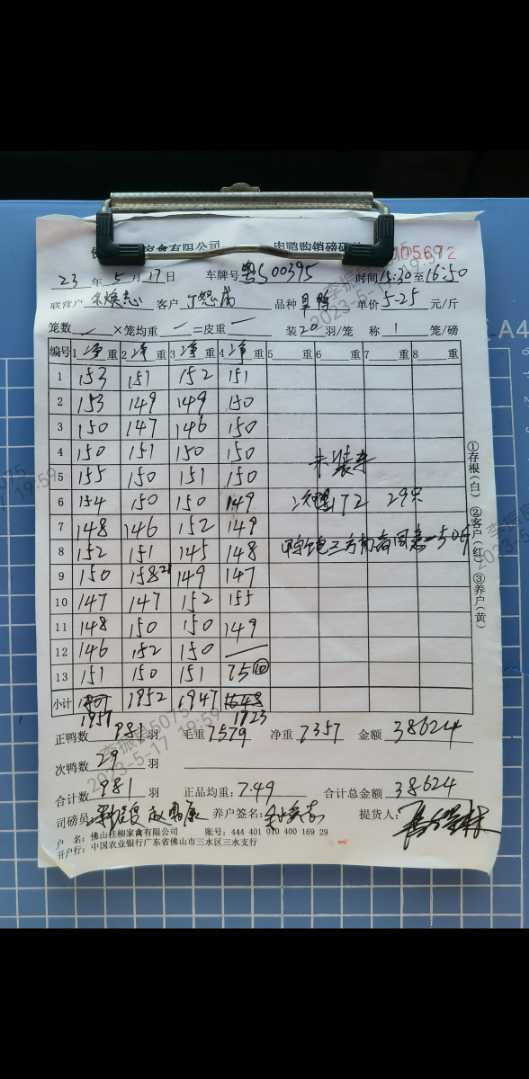 家禽有限公司 肉鸭购销磅码单 005692
23 年 5 月 17 日 车牌号 粤S00395 时间 15:30 至 16:50
联营户 客户 品种 单价 5.25 元/斤
笼数 — ×笼均重 — =皮重 — 装 20 羽/笼 称 1 笼/磅
编号 1 净 重 2 净 重 3 净 重 4 净 重 5 重 6 重 7 重 8 重
1 153 151 152 151
2 153 149 149 150
3 150 147 146 150
4 150 151 150 150
5 155 150 151 150
6 154 150 150 149 次鸭172 29只
7 148 146 152 149
8 152 151 145 148
9 150 158 21 149 147
10 147 147 152 155
11 148 150 150 149
12 146 152 150 —
13 151 150 151 75 ⑩
小计 1957 1952 1947 1723
①存根(白) ②客户(红) ③养户(黄)
正鸭数 981 羽 毛重 7579 净重 7357 金额 38624
次鸭数 29 羽
合计数 981 羽 正品均重: 7.49 合计总金额 38624
司磅员: 养户签名: 提货人:
户 名: 佛山桂柳家禽有限公司 账号: 444 401 010 400 169 29
开户行: 中国农业银行广东省佛山市三水区三水支行
李振 5075
2023-5-17 19:59